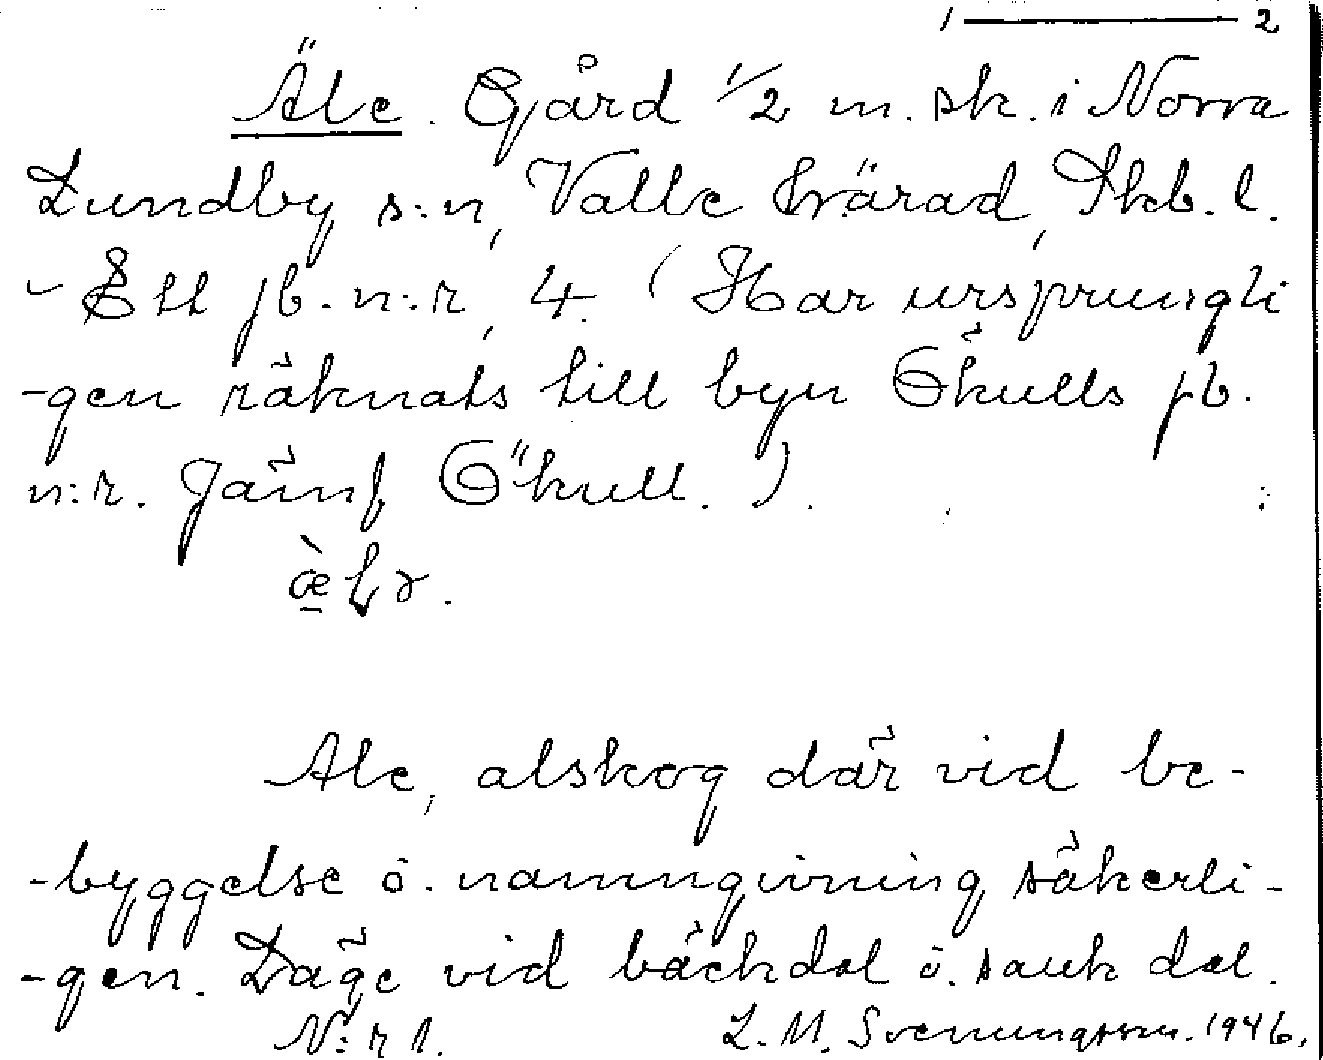 1 — 2
Äle. Gård 1/2 m. sk. i Norra
Lundby s:n, Valle härad, Skb. l.
- Ett jb. n:r, 4. (Har ursprungli
-gen räknats till byn Ökulls jb.
n:r. Jämf Ökull.).
Ale, alskog där vid be-
-byggelse o. namngivning säkerli-
-gen. Läge vid bäckdal o. sank dal.
N:r 1. L. M. Svenungsson. 1946.